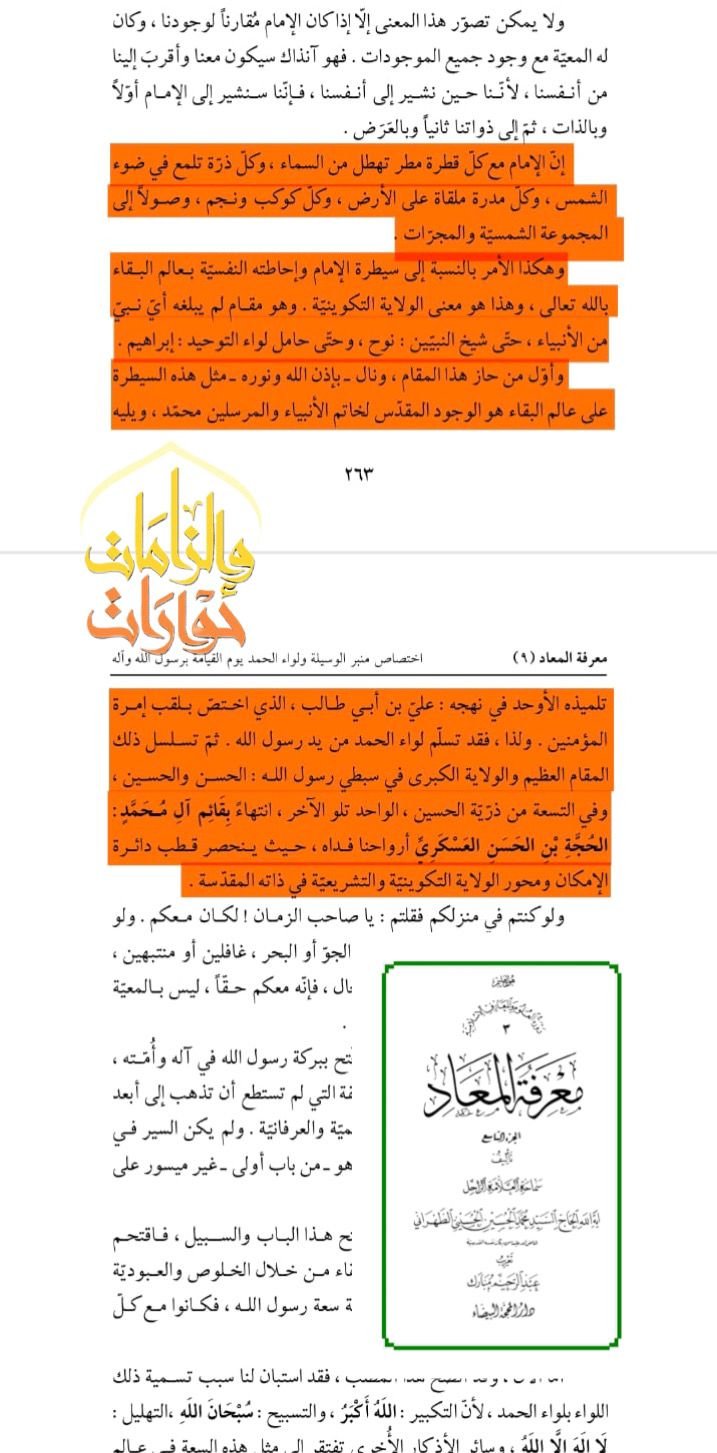 ولا يمكن تصوّر هذا المعنى إلّا إذا كان الإمام مُقارناً لوجودنا ، وكان
له المعيّة مع وجود جميع الموجودات . فهو آنذاك سيكون معنا وأقربَ إلينا
من أنفسنا ، لأنّنا حين نشير إلى أنفسنا ، فإنّنا سنشير إلى الإمام أوّلاً
وبالذات ، ثمّ إلى ذواتنا ثانياً وبالعَرَض .
إنّ الإمام مع كلّ قطرة مطر تهطل من السماء ، وكلّ ذرّة تلمع في ضوء
الشمس ، وكلّ مدرة ملقاة على الأرض ، وكلّ كوكب ونجم ، وصولاً إلى
المجموعة الشمسيّة والمجرّات .
وهكذا الأمر بالنسبة إلى سيطرة الإمام وإحاطته النفسيّة بعالم البقاء
بالله تعالى ، وهذا هو معنى الولاية التكوينيّة . وهو مقام لم يبلغه أيّ نبيّ
من الأنبياء ، حتّى شيخ النبيّين : نوح ، وحتّى حامل لواء التوحيد : إبراهيم .
وأوّل من حاز هذا المقام ، ونال ـ بإذن الله ونوره ـ مثل هذه السيطرة
على عالم البقاء هو الوجود المقدّس لخاتم الأنبياء والمرسلين محمّد ، ويليه
٢٦٣
والزامات
حوارات
معرفة المعاد (٩)
اختصاص منبر الوسيلة ولواء الحمد يوم القيامة برسول الله وآله
تلميذه الأوحد في نهجه : عليّ بن أبي طالب ، الذي اختصّ بلقب إمرة
المؤمنين . ولذا ، فقد تسلّم لواء الحمد من يد رسول الله . ثمّ تسلسل ذلك
المقام العظيم والولاية الكبرى في سبطي رسول الله : الحسن والحسين ،
وفي التسعة من ذرّيّة الحسين ، الواحد تلو الآخر ، انتهاءً بِقَائِمِ آلِ مُحَمَّدٍ :
الحُجَّةِ بْنِ الحَسَنِ العَسْكَرِيِّ أرواحنا فداه ، حيث ينحصر قطب دائرة
الإمكان ومحور الولاية التكوينيّة والتشريعيّة في ذاته المقدّسة .
ولو كنتم في منزلكم فقلتم : يا صاحب الزمان ! لكان معكم . ولو
الجوّ أو البحر ، غافلين أو منتبهين ،
ال ، فإنّه معكم حقّاً ، ليس بالمعيّة
.
تح ببركة رسول الله في آله وأُمّته ،
فة التي لم تستطع أن تذهب إلى أبعد
ميّة والعرفانيّة . ولم يكن السير في
هو ـ من باب أولى ـ غير ميسور على
تح هذا الباب والسبيل ، فاقتحم
اء من خلال الخلوص والعبوديّة
ة سعة رسول الله ، فكانوا مع كلّ
٣
معرفة المعاد
الجزء التاسع
تأليف
سماحة العلامة الراحل
آية الله الحاج السيد محمد الحسين الحسيني الطهراني
تعريب
عبد الرحيم مبارك
دار المحجة البيضاء
، فقد استبان لنا سبب تسمية ذلك
اللواء بلواء الحمد ، لأنّ التكبير : اللهُ أَكْبَرُ ، والتسبيح : سُبْحَانَ اللهِ ،التهليل :
لَا إلَهَ إلَّا اللهُ ، وسائر الأذكار الأُخرى تفتقر إلى مثل هذه السعة في عالم